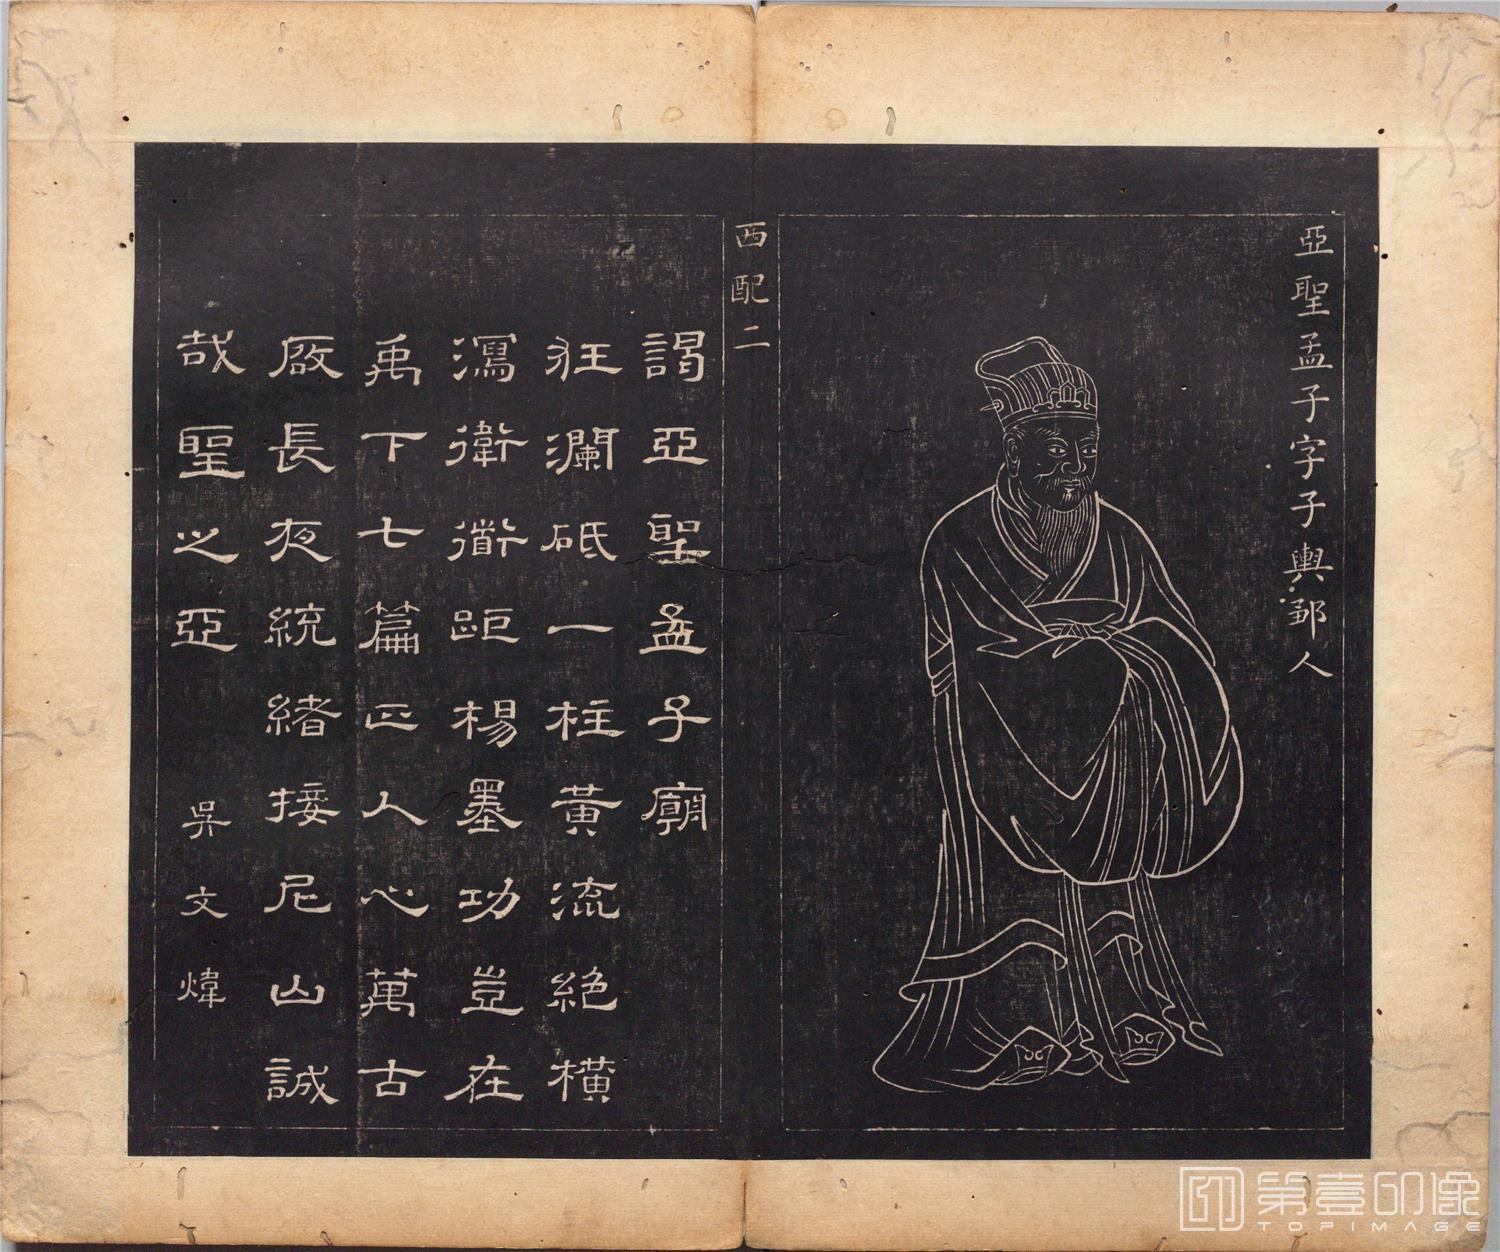 亞聖孟子字子輿鄒人
西配二
謁亞聖孟子廟
狂瀾砥一柱黃流絶橫
瀉衛衢距楊墨功豈在
禹下七篇正人心萬古
啟長夜統緒接尼山誠
哉聖之亞
吳文煒
第壹印像
TOPIMAGE